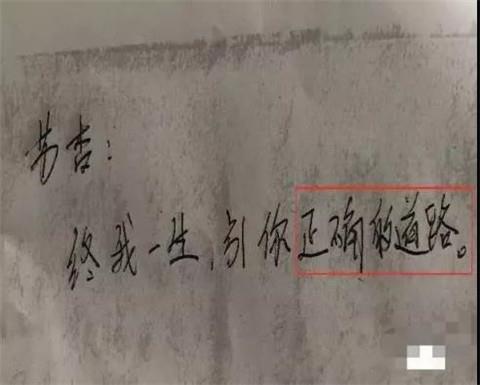 杏：
终我一生，引你正确的道路。